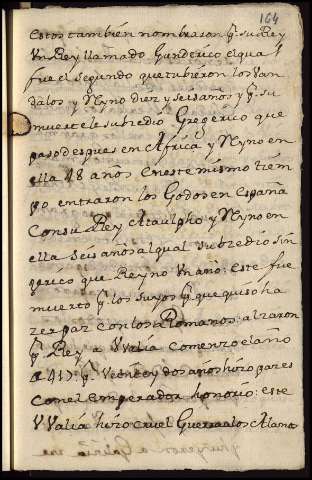 164
Estos también nombraron pr su Rey
Un Rey llamado Gunderico el qual
fue el Segundo que tubieron los Van
dalos y Reyno diez y seis años y pr su
muerte le subcedio Gregerico que
paso despues en Africa y Reyno en
ella 48 años En este mismo tiem
po entraron los Godos en España
Con su Rey Ataulpho y Reyno en
ella Seis años al qual subcedio Sin
gerico que Reyno Un año: este fue
muerto pr los suyos pr que quiso ha
zer paz con los Romanos alzaron
pr Rey a Uvalia comenzo el año
417 pr Veinte y dos años hizo pazes
Con el Emperador honorio: este
Uvalia hizo cruel Guerra a los Alanos